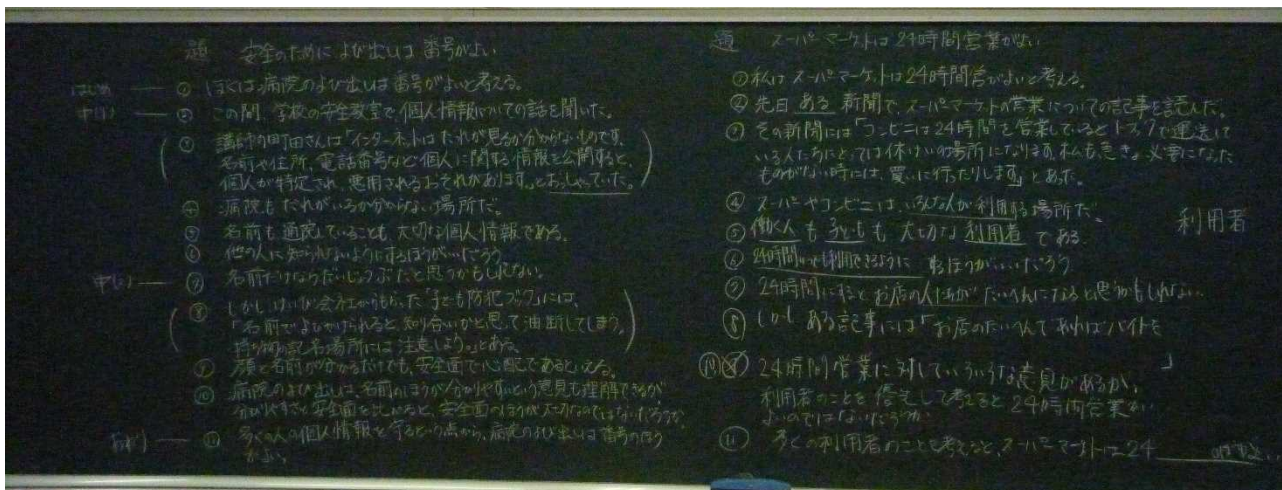 題 安全のために よび出しは 番号がよい
はじめ ① ぼくは、病院のよび出しは番号がよいと考える。
中(1) ② この間、学校の安全教室で、個人情報についての話を聞いた。
③ 講師の町田さんは「インターネットは だれが見るか分からないものです。
名前や住所、電話番号など個人に関する情報を公開すると、
個人が特定され、悪用されるおそれがあります。」とおっしゃっていた。
④ 病院も だれがいるか分からない場所だ。
⑤ 名前も通院していることも、大切な個人情報である。
⑥ 他の人に知られないようにするほうがいいだろう
中(2) ⑦ 名前だけならだいじょうぶだと思うかもしれない。
⑧ しかし、けいび会社からもらった「子ども防犯ブック」には、
「名前でよびかけられると、知り合いかと思って油断してしまう。
持ち物の記名場所には注意しよう。」とある。
⑨ 顔と名前が分かるだけでも、安全面で心配であるといえる。
⑩ 病院のよび出しは、名前のほうが分かりやすいという意見も理解できるが、
分かりやすさと安全面を比べると、安全面のほうが大切なのではないだろうか。
おわり ⑪ 多くの人の個人情報を守るという点から、病院のよび出しは番号のほう
がよい。
題 スーパーマーケットは 24時間営業がよい
① 私は スーパーマーケットは24時間営業がよいと考える。
② 先日、ある新聞で、スーパーマーケットの営業についての記事を読んだ。
③ その新聞には「コンビニは24時間を営業していると トラックで運送して
いる人たちにとっては休けいの場所になります。私も急きょ必要になった
ものがない時には、買いに行ったりします」とあった。
④ スーパーやコンビニは、いろんな人が利用する場所だ。
⑤ 働く人も 子どもも 大切な 利用者 である。
利用者
⑥ 24時間いつでも利用できるように するほうがいいだろう
⑦ 24時間にすると お店の人たちが たいへんになると思うかもしれない。
⑧ しかし ある記事には「お店のたいへんで あればバイトを
」
⑩ 24時間営業に対していろいろな意見があるが、
利用者のことを優先して考えると 24時間営業が
よいのではないだろうか。
⑪ 多くの利用者のことを考えると、スーパーマーケットは24